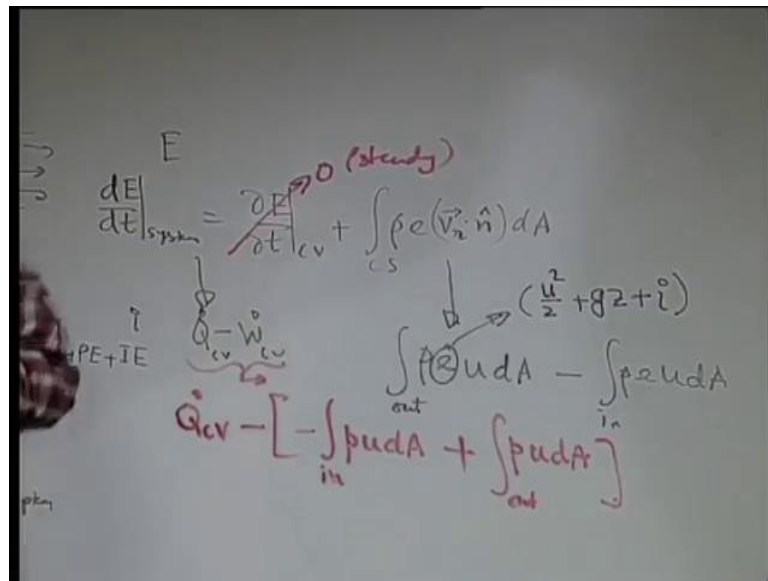 E
dE/dt|system = ∂E/∂t|CV + ∫CS ρe(V⃗r·n̂)dA
0 (steady)
(u²/2 + gz + i)
i
+PE+IE
Q̇CV − ẆCV
∫out ρeudA − ∫in ρeudA
Q̇CV − [−∫in pudA + ∫out pudA]